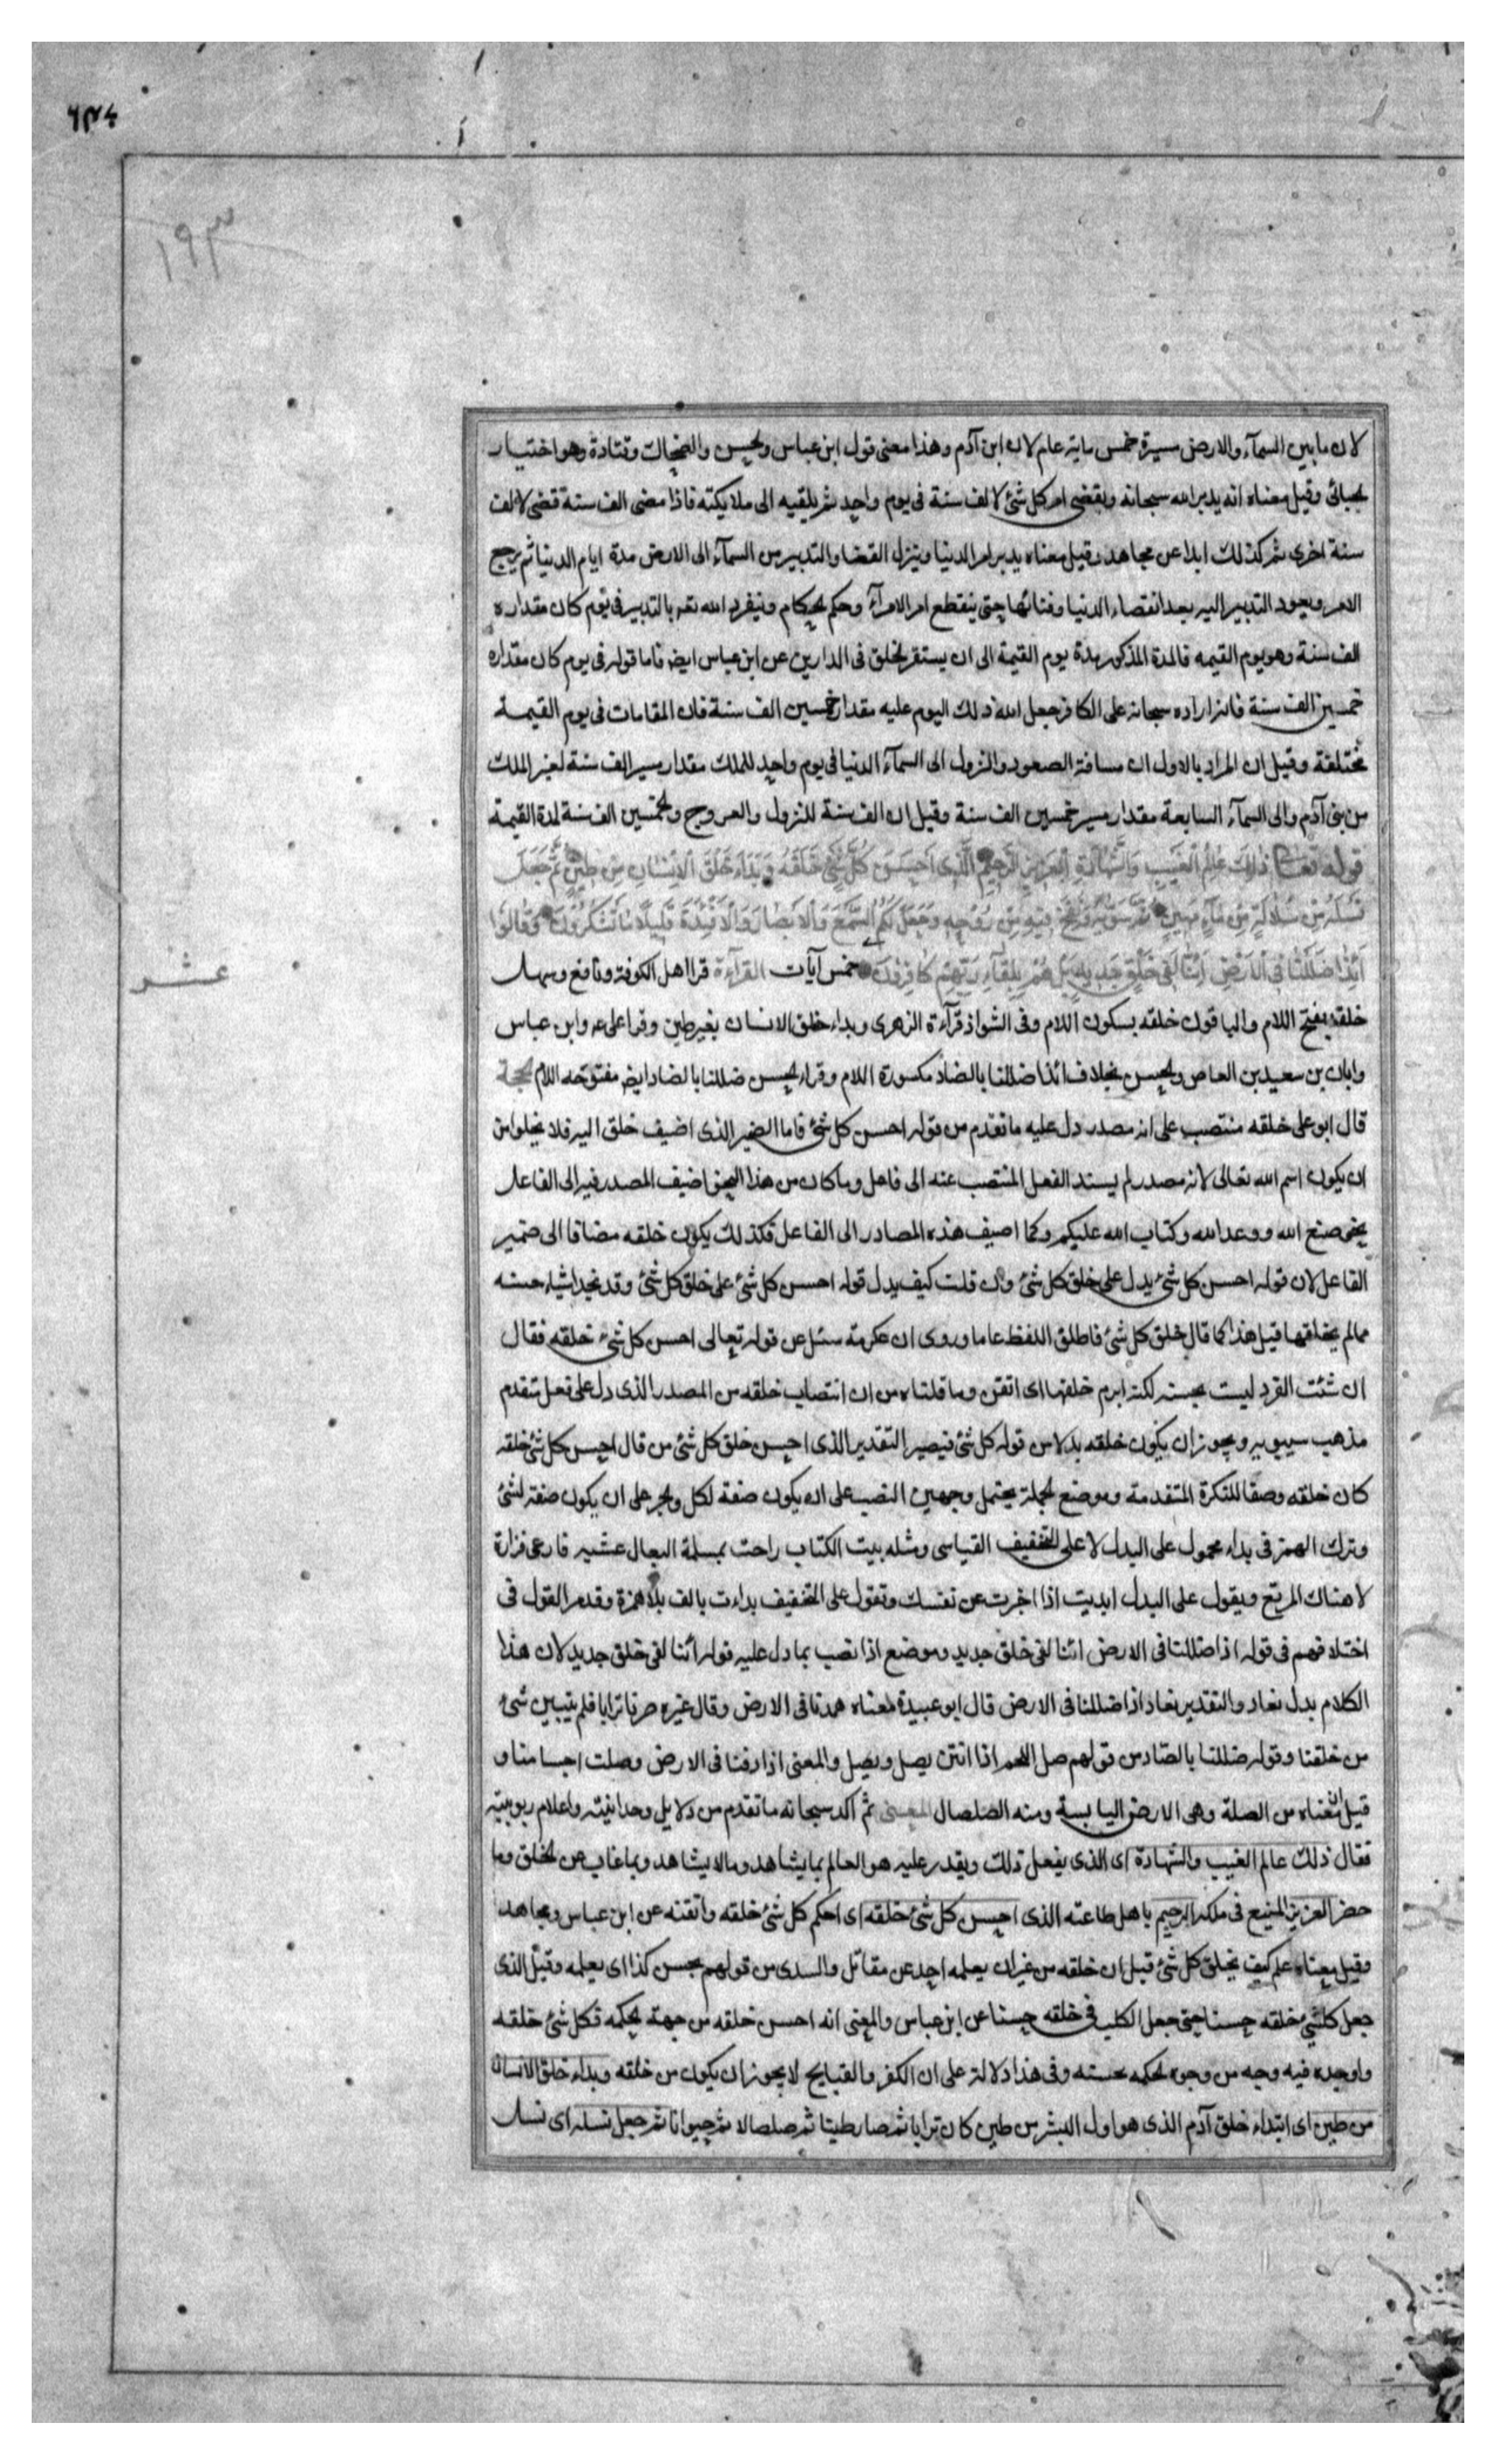 ١٩٣
لان ما بين السمآء والارض مسيرة خمس ماية عام لابن آدم وهذا معنى قول ابن عباس والحسن والضحاك وقتادة وهو اختيار
الجبائى وقيل معناه انه يدبر الله سبحانه ويقضى امر كل شئ لالف سنة فى يوم واحد ثم يلقيه الى ملايكته فاذا مضى الف سنة قضى لالف
سنة اخرى ثم كذلك ابدا عن مجاهد وقيل معناه يدبر امر الدنيا وينزل القضا والتدبير من السمآء الى الارض مدة ايام الدنيا ثم يرجع
الامر ويعود التدبير اليه بعد انقضاء الدنيا وفنائها حتى ينقطع امر الامرآء وحكم الحكام وينفرد الله تعه بالتدبير فى يوم كان مقداره
الف سنة وهو يوم القيمه فالمدة المذكور مدة يوم القيمة الى ان يستقر الخلق فى الدارين عن ابن عباس ايضا فاما قوله فى يوم كان مقداره
خمسين الف سنة فانه اراده سبحانه على الكافر جعل الله ذلك اليوم عليه مقدار خمسين الف سنة فان المقامات فى يوم القيمة
مختلفة وقيل ان المراد بالاول ان مسافة الصعود والنزول الى السمآء الدنيا فى يوم واحد للملك مقدار مسير الف سنة لغير الملك
من بنى آدم والى السمآء السابعة مقدار مسير خمسين الف سنة وقيل ان الف سنة للنزول والعروج والخمسين الف سنة لمدة القيمة
قوله تعالى ذٰلِكَ عَالِمُ الْغَيْبِ وَالشَّهَادَةِ الْعَزِيزُ الرَّحِيمُ الَّذِى اَحْسَنَ كُلَّ شَىْءٍ خَلَقَهُ وَبَدَاَ خَلْقَ الْاِنْسَانِ مِنْ طِينٍ ثُمَّ جَعَلَ
نَسْلَهُ مِنْ سُلَالَةٍ مِنْ مَآءٍ مَهِينٍ ثُمَّ سَوّٰيهُ وَنَفَخَ فِيهِ مِنْ رُوحِهِ وَجَعَلَ لَكُمُ السَّمْعَ وَالْاَبْصَارَ وَالْاَفْئِدَةَ قَلِيلًا مَا تَشْكُرُونَ وَقَالُوا
اَئِذَا ضَلَلْنَا فِى الْاَرْضِ اَئِنَّا لَفِى خَلْقٍ جَدِيدٍ بَلْ هُمْ بِلِقَآءِ رَبِّهِمْ كَافِرُونَ خمس آيات القرآءة قرا اهل الكوفة ونافع وسهل
عشر
خلقه بفتح اللام والباقون خلقه بسكون اللام وفى الشواذ قرآءة الزهرى وبداء خلق الانسان بغير همز وقرا على ع وابن عباس
وابان بن سعيد بن العاص والحسن بخلاف ائذا ضللنا بالضاد مكسورة اللام وقراء الحسن ضللنا بالضاد ايض مفتوحه اللام الحجة
قال ابو على خلقه منتصب على انه مصدر دل عليه ما تقدم من قوله احسن كل شئ فاما الضمير الذى اضيف خلق اليه فلا يخلو من
ان يكون اسم الله تعالى لانه مصدر لم يسند الفعل المنتصب عنه الى فاعل وما كان من هذا النحو اضيف المصدر فيه الى الفاعل
نحو صنع الله ووعد الله وكتاب الله عليكم وكما اضيف هذه المصادر الى الفاعل فكذلك يكون خلقه مضافا الى ضمير
الفاعل لان قوله احسن كل شئ يدل على خلق كل شئ وان قلت كيف يدل قوله احسن كل شئ على خلق كل شئ وقد نجد اشياء حسنه
مما لم يخلقها قيل هذا كما قال خلق كل شئ فاطلق اللفظ عاما وروى ان عكرمة سئل عن قوله تعالى احسن كل شئ خلقه فقال
ان شئت القرد ليست بحسنه لكنه ابرم خلقها اى اتقن وما قلناه من ان انتصاب خلقه من المصدر الذى دل على فعل متقدم
مذهب سيبويه ويجوز ان يكون خلقه بدلا من قوله كل شئ فيصير التقدير الذى احسن خلق كل شئ من قال احسن كل شئ خلقه
كان خلقه وصفا للنكرة المتقدمة وموضع الجملة يحتمل وجهين النصب على ان يكون صفة لكل والجر على ان يكون صفة لشئ
وترك الهمز فى بداء محمول على البدل لا على التخفيف القياسى ومثله بيت الكتاب راحت بمسلمة البغال عشيه فارعى فزارة
لا هناك المرتع ويقول على البدل ابديت اذا اخبرت عن نفسك وتقول على التخفيف بدات بالف بلا همزة وقدم القول فى
اختلافهم فى قوله اذا ضللنا فى الارض ائنا لفى خلق جديد وموضع اذا نصب بما دل عليه قوله ائنا لفى خلق جديد لان هذا
الكلام يدل نعاد والتقدير نعاد اذا ضللنا فى الارض قال ابو عبيدة معناه همدنا فى الارض وقال غيره صرنا ترابا فلم يتبين شئ
من خلقنا وقوله ضللنا بالصاد من قولهم صل اللحم اذا انتن يصل ويصل والمعنى اذا دفنا فى الارض وصلت اجسامنا و
قيل معناه من الصلة وهى الارض اليابسة ومنه الصلصال المعنى ثم اكد سبحانه ما تقدم من دلايل وحدانيته واعلام ربوبيته
فقال ذلك عالم الغيب والشهادة اى الذى يفعل ذلك ويقدر عليه هو العالم بما يشاهد وما لا يشاهد وبما غاب عن الخلق وما
حضر العزيز المنيع فى ملكه الرحيم باهل طاعته الذى احسن كل شئ خلقه اى احكم كل شئ خلقه واتقنه عن ابن عباس ومجاهد
وقيل معناه علم كيف يخلق كل شئ قبل ان خلقه من غير ان يعلمه احد عن مقاتل والسدى من قولهم يحسن كذا اى يعلمه وقيل الذى
جعل كلشئ مخلقه حسنا حتى جعل الكلب فى خلقه حسنا عن ابن عباس والمعنى انه احسن خلقه من جهة الحكمه فكل شئ خلقه
واوجده فيه وجه من وجوه الحكمه تحسنه وفى هذا دلالة على ان الكفر والقبايح لا يجوز ان يكون من خلقه وبداء خلق الانسان
من طين اى ابتداء خلق آدم الذى هو اول البشر من طين كان ترابا ثم صار طينا ثم صلصالا ثم حيوانا ثم جعل نسله اى نسل